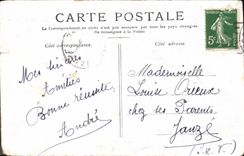 CARTE POSTALE
La Correspondance au recto n'est pas acceptée par tous les pays étrangers
(Se renseigner à la Poste)
Côté correspondance.
Côté adresse.
Mes sincères
Amitiés
Bonne réussite
André
Mademoiselle
Louise
chez ses Parents
Janzé
(I. et V.)